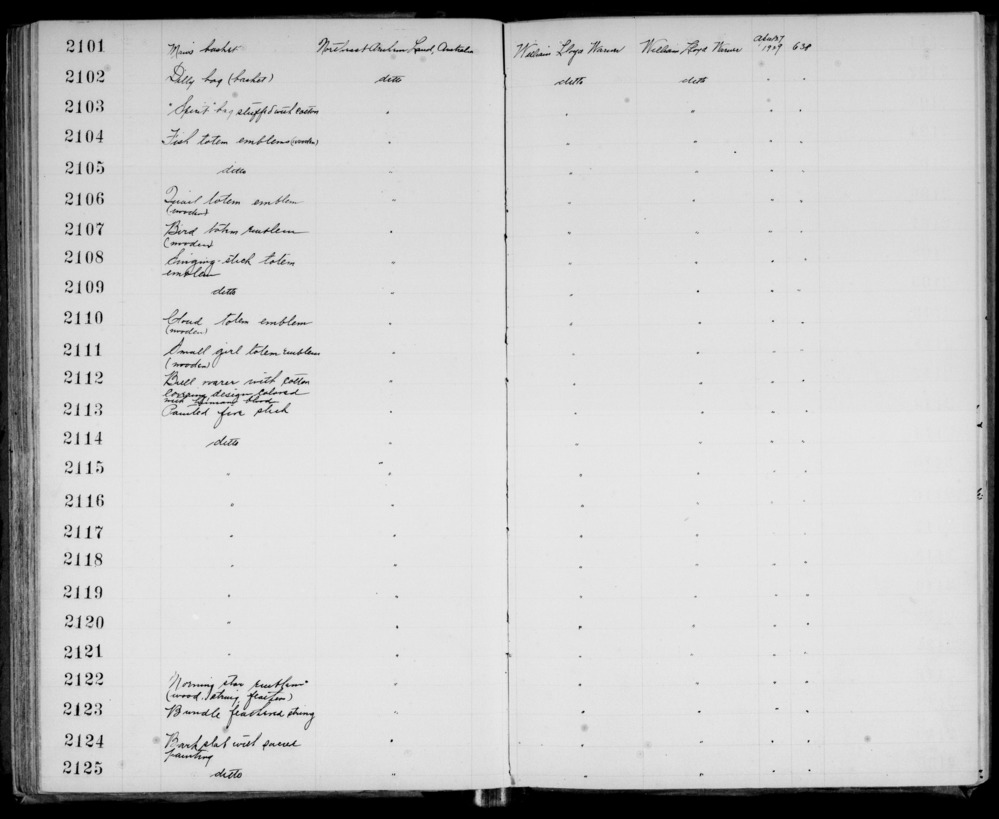 2101 Man's basket Northeast Arnhem Land, Australia William Lloyd Warner William Lloyd Warner 1929 638
2102 Dilly bag (basket) ditto ditto ditto " "
2103 "Spirit" bag stuffed with cotton " " " " "
2104 Fish totem emblem (wooden) " " " " "
2105 ditto " " " " "
2106 Quail totem emblem " " " " "
(wooden)
2107 Bird totem emblem " " " " "
(wooden)
2108 Singing-stick totem " " " " "
emblem
2109 ditto " " " " "
2110 Cloud totem emblem " " " " "
(wooden)
2111 Small girl totem emblem " " " " "
(wooden)
2112 Bull roarer with cotton " " " " "
covering design colored
with human blood
2113 Painted fire stick " " " " "
2114 ditto " " " " "
2115 " " " " " "
2116 " " " " " "
2117 " " " " " "
2118 " " " " " "
2119 " " " " " "
2120 " " " " " "
2121 " " " " " "
2122 Morning star emblem " " " " "
(wood, string, feathers)
2123 Bundle feathered string " " " " "
2124 Bark slab with sacred " " " " "
painting
2125 ditto " " " " "